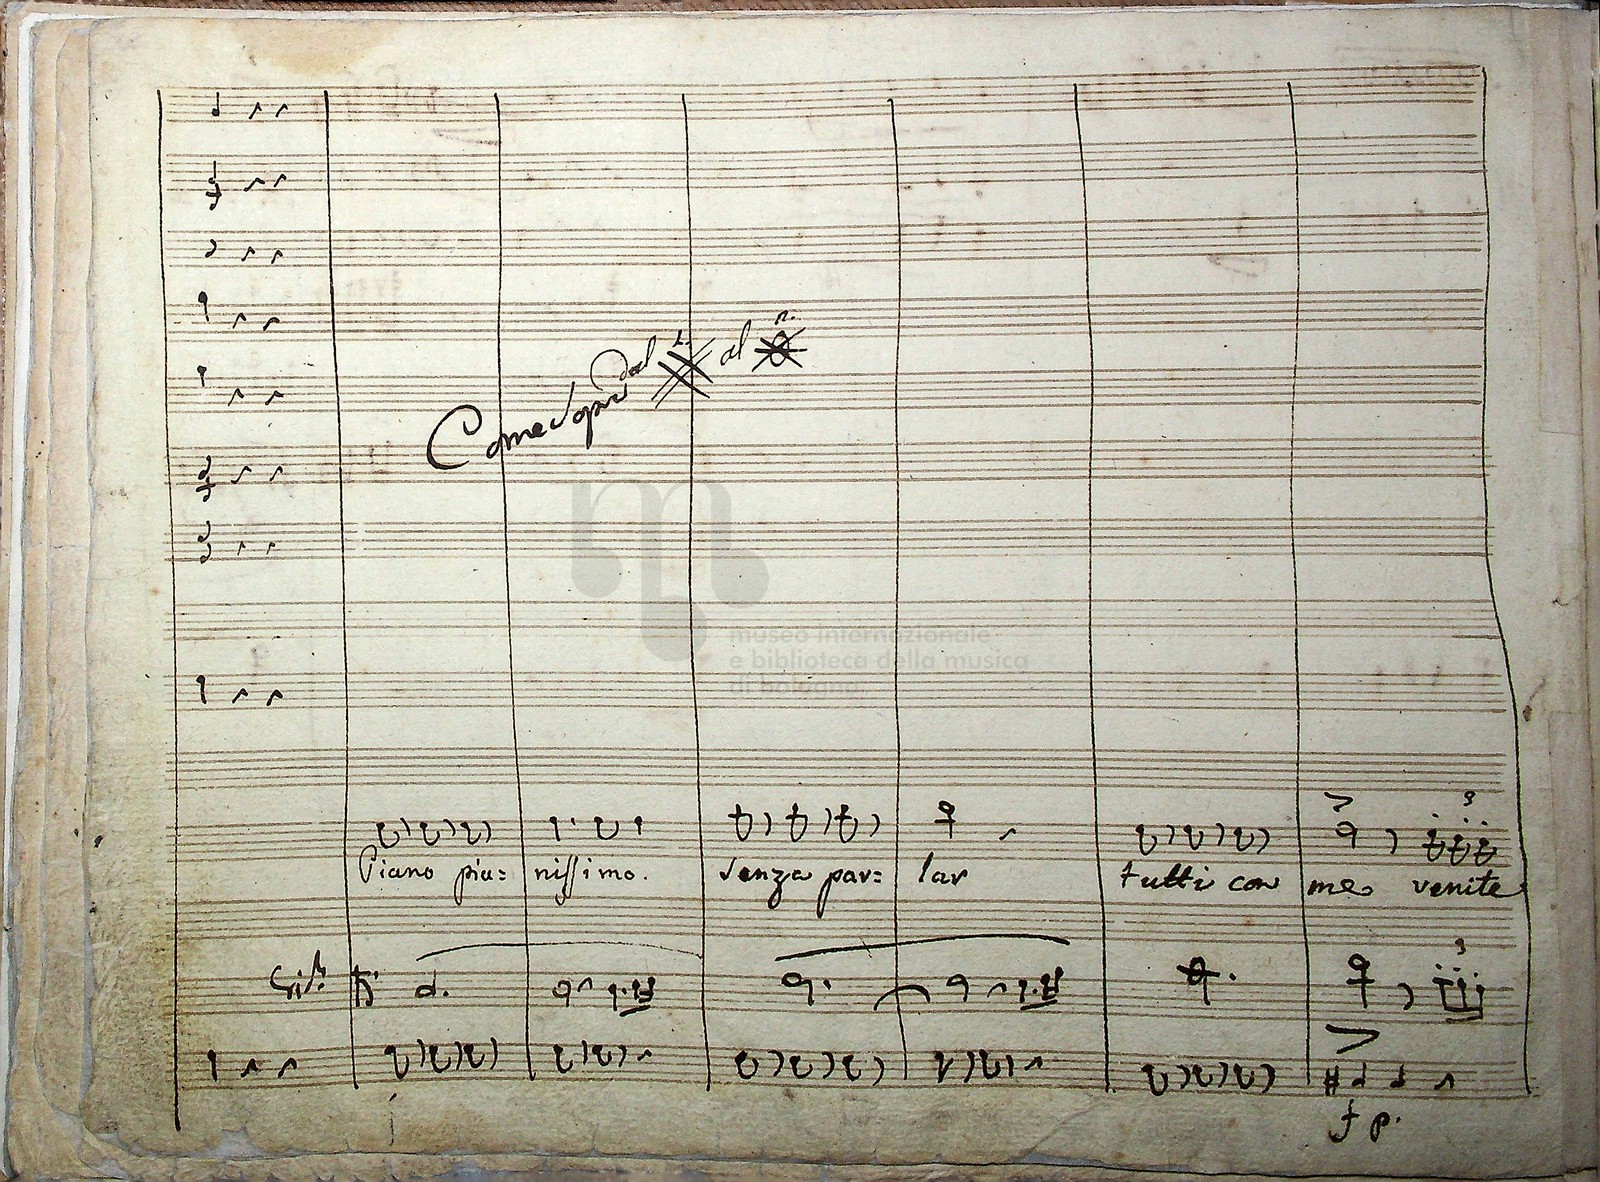 Come sopra dal 1. al 2.
museo internazionale
e biblioteca della musica
di bologna
3
Piano pia= nissimo. senza par= lar tutti con me venite
3
f p.